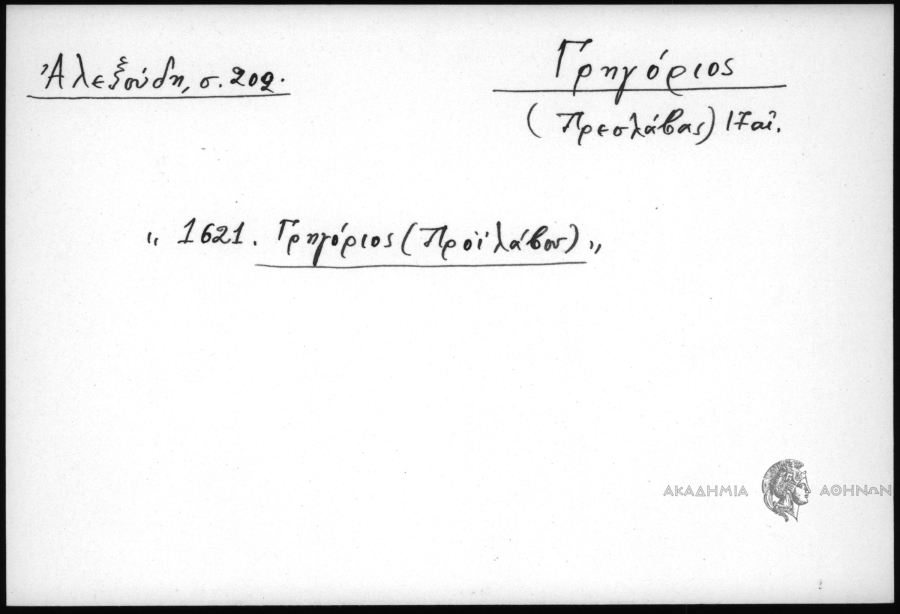 Ἀλεξούδη, σ. 202.
Γρηγόριος
(Πρεσλάβας) 17 αἰ.
„ 1621. Γρηγόριος (Προϊλάβου) „
ΑΚΑΔΗΜΙΑ ΑΘΗΝΩΝ